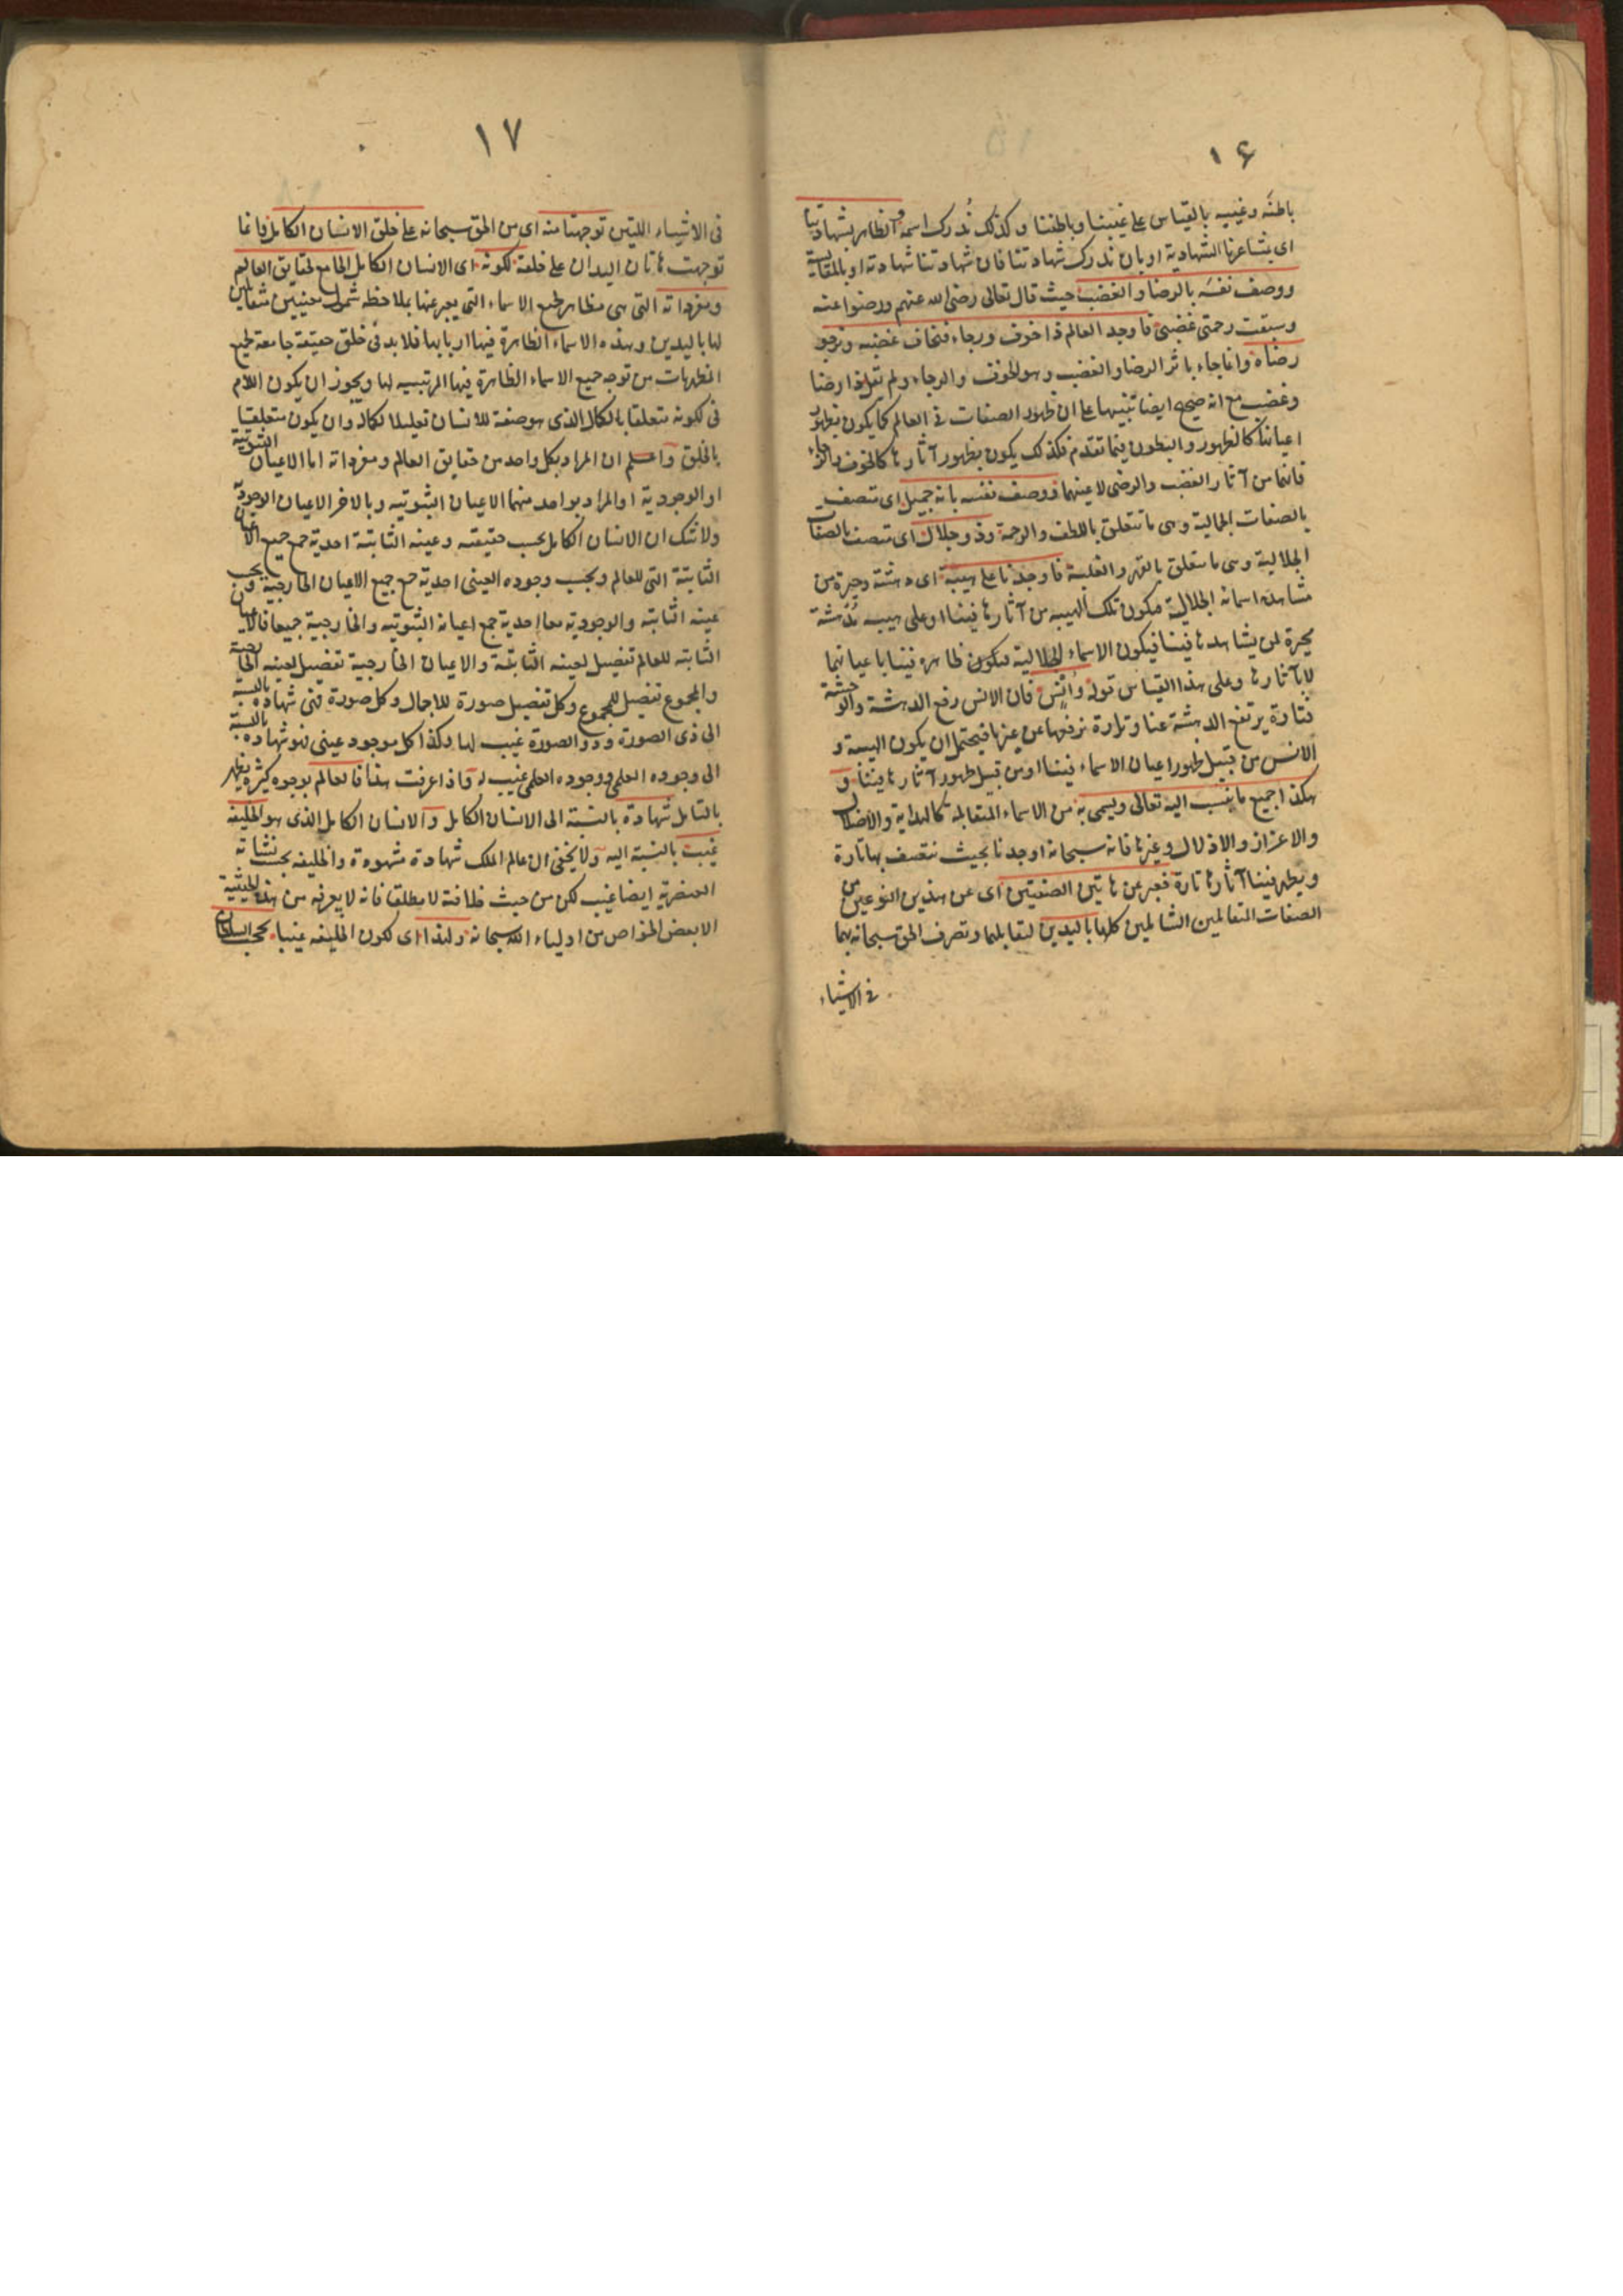 ١۶
باطنه وغيبه بالقياس على غيبنا وباطننا وكذلك ندرك اسمه الظاهر بشهادتنا
اى بمشاعرنا الشهادية او بان ندرك شهادتنا فان شهادتنا شهادته او بالمقايسة
ووصف نفسه بالرضا والغضب حيث قال تعالى رضى الله عنهم ورضوا عنه
وسبقت رحمتى غضبى فاوجد العالم ذا خوف ورجاء فنخاف غضبه ونرجو
رضاه وانما جاء باثر الرضا والغضب وهو الخوف والرجاء ولم يقل ذا رضا
وغضب مع انه صحيح ايضا تنبيها على ان ظهور الصفات فى العالم كما يكون بظهور
اعيانها كالظهور والبطون فيما تقدم فكذلك يكون بظهور آثارها كالخوف والرجاء
فانهما من آثار الغضب والرضى لا عينهما ووصف نفسه بانه جميل اى متصف
بالصفات الجمالية وهى ما تتعلق باللطف والرحمة وذو جلال اى متصف بالصفات
الجلالية وهى ما يتعلق بالقهر والغلبة فاوجدنا على هيبة اى دهشة وحيرة من
مشاهدة اسمائه الجلالية فيكون تلك الهيبه من آثارها فينا او على هيبه مدهشة
محيرة لمن يشاهدها فينا فيكون الاسماء الجلالية فيكون ظاهره فينا باعيانها
لا بآثارها وعلى هذا القياس قوله وانس فان الانس رفع الدهشة والوحشة
فتارة يرتفع الدهشة عنا وتارة نرفعها عن غيرنا فيحتمل ان يكون الهيبة و
الانس من قبيل ظهور اعيان الاسماء فينا او من قبيل ظهور آثارها فينا و
هكذا جميع ما ينسب اليه تعالى ويسمى به من الاسماء المتقابله كالهداية والاضلال
والاعزاز والاذلال وغيرها فانه سبحانه اوجدنا بحيث نتصف بها تارة
ويظهر فينا آثارها تارة فعبر عن هاتين الصفتين اى عن هذين النوعين من
الصفات المتقابلين الشاملين كلها باليدين لتقابلهما وتصرف الحق سبحانه بهما
فى الاشياء
١٧
فى الاشياء اللتين توجهتا منه اى من الحق سبحانه على خلق الانسان الكامل فانما
توجهت هاتان اليدان على خلقه لكونه اى الانسان الكامل الجامع لحقايق العالم
ومفرداته التى هى مظاهر لجميع الاسماء التى يعبر عنها بملاحظه شمول معنيين متقابلين
لها باليدين وهذه الاسماء الظاهرة فيها اربابها فلا بد فى خلق حقيقة جامعة لجميع
المظهريات من توجه جميع الاسماء الظاهرة فيها المرتبيه لها ويجوز ان يكون اللام
فى لكونه متعلقا بالكمال الذى هو صفة للانسان تعليلا لكماله وان يكون متعلقا
بالخلق واعلم ان المراد بكل واحد من حقايق العالم ومفرداته اما الاعيان الثبوتية
او الوجودية او المراد بواحد منهما الاعيان الثبوتيه وبالاخر الاعيان الوجودية
ولا شك ان الانسان الكامل بحسب حقيقته وعينه الثابتة احدية جمع جميع الاعيان
الثابتة التى للعالم وبحسب وجوده العينى احدية جمع جميع الاعيان الخارجية وبحسب
عينه الثابته والوجودية معا احدية جمع اعيانه الثبوتيه والخارجية جميعا فالاعيان
الثابته للعالم تفصيل لعينه الثابتة والاعيان الخارجية تفصيل لعينه الخارجية
والمجموع تفصيل للمجموع وكل تفصيل صورة للاجمال وكل صورة فهى شهادة بالنسبة
الى ذى الصورة وذو الصورة غيب لها وكذا كل موجود عينى فهو شهاده بالنسبة
الى وجوده العلمى ووجوده العلمى غيب له واذا عرفت هذا فالعالم بوجوه كثيره يظهر
بالتامل شهادة بالنسبة الى الانسان الكامل والانسان الكامل الذى هو الخليفة
غيب بالنسبة اليه ولا يخفى ان عالم الملك شهادة مشهودة والخليفه بحسب نشاته
العنصرية ايضا غيب لكن من حيث خلافته لا مطلقا فانه لا يعرفه من هذه الحيثية
الا بعض الخواص من اولياء الله سبحانه ولهذا اى لكون الخليفه غيبا يحجب السلطان